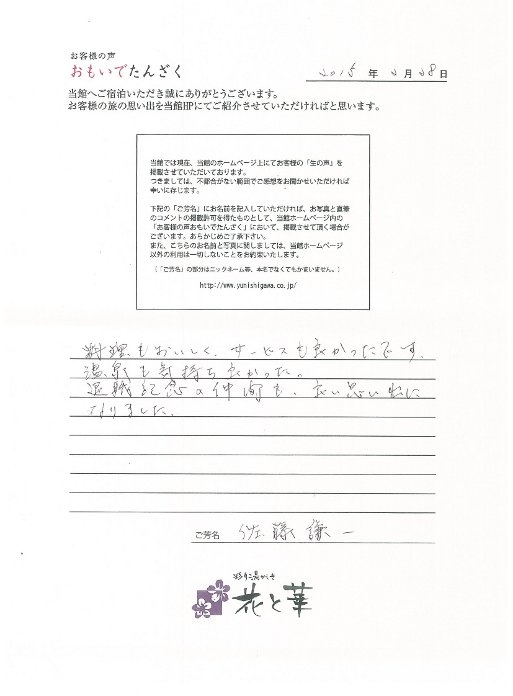 お客様の声
おもいでたんざく
2015 年 2 月 28 日
当館へご宿泊いただき誠にありがとうございます。
お客様の旅の思い出を当館HPにてご紹介させていただければと思います。
当館では現在、当館のホームページ上にてお客様の「生の声」を
掲載させていただいております。
つきましては、不都合がない範囲でご感想をお聞かせいただければ
幸いに存じます。
下記の「ご芳名」にお名前を記入していただければ、お写真と直筆
のコメントの掲載許可を得たものとして、当館ホームページ内の
「お客様の声おもいでたんざく」において、掲載させて頂く場合が
ございます。あらかじめご了承下さい。
また、こちらのお名前と写真に関しましては、当館ホームページ
以外の利用は一切しないことをお約束いたします。
(「ご芳名」の部分はニックネーム等、本名でなくてもかまいません。)
http://www.yunishigawa.co.jp/
料理もおいしく、サービスも良かったです。
温泉も気持ち良かった。
退職記念の仲間も、良い思い出に
なりました。
ご芳名 佐藤謙一
花と華